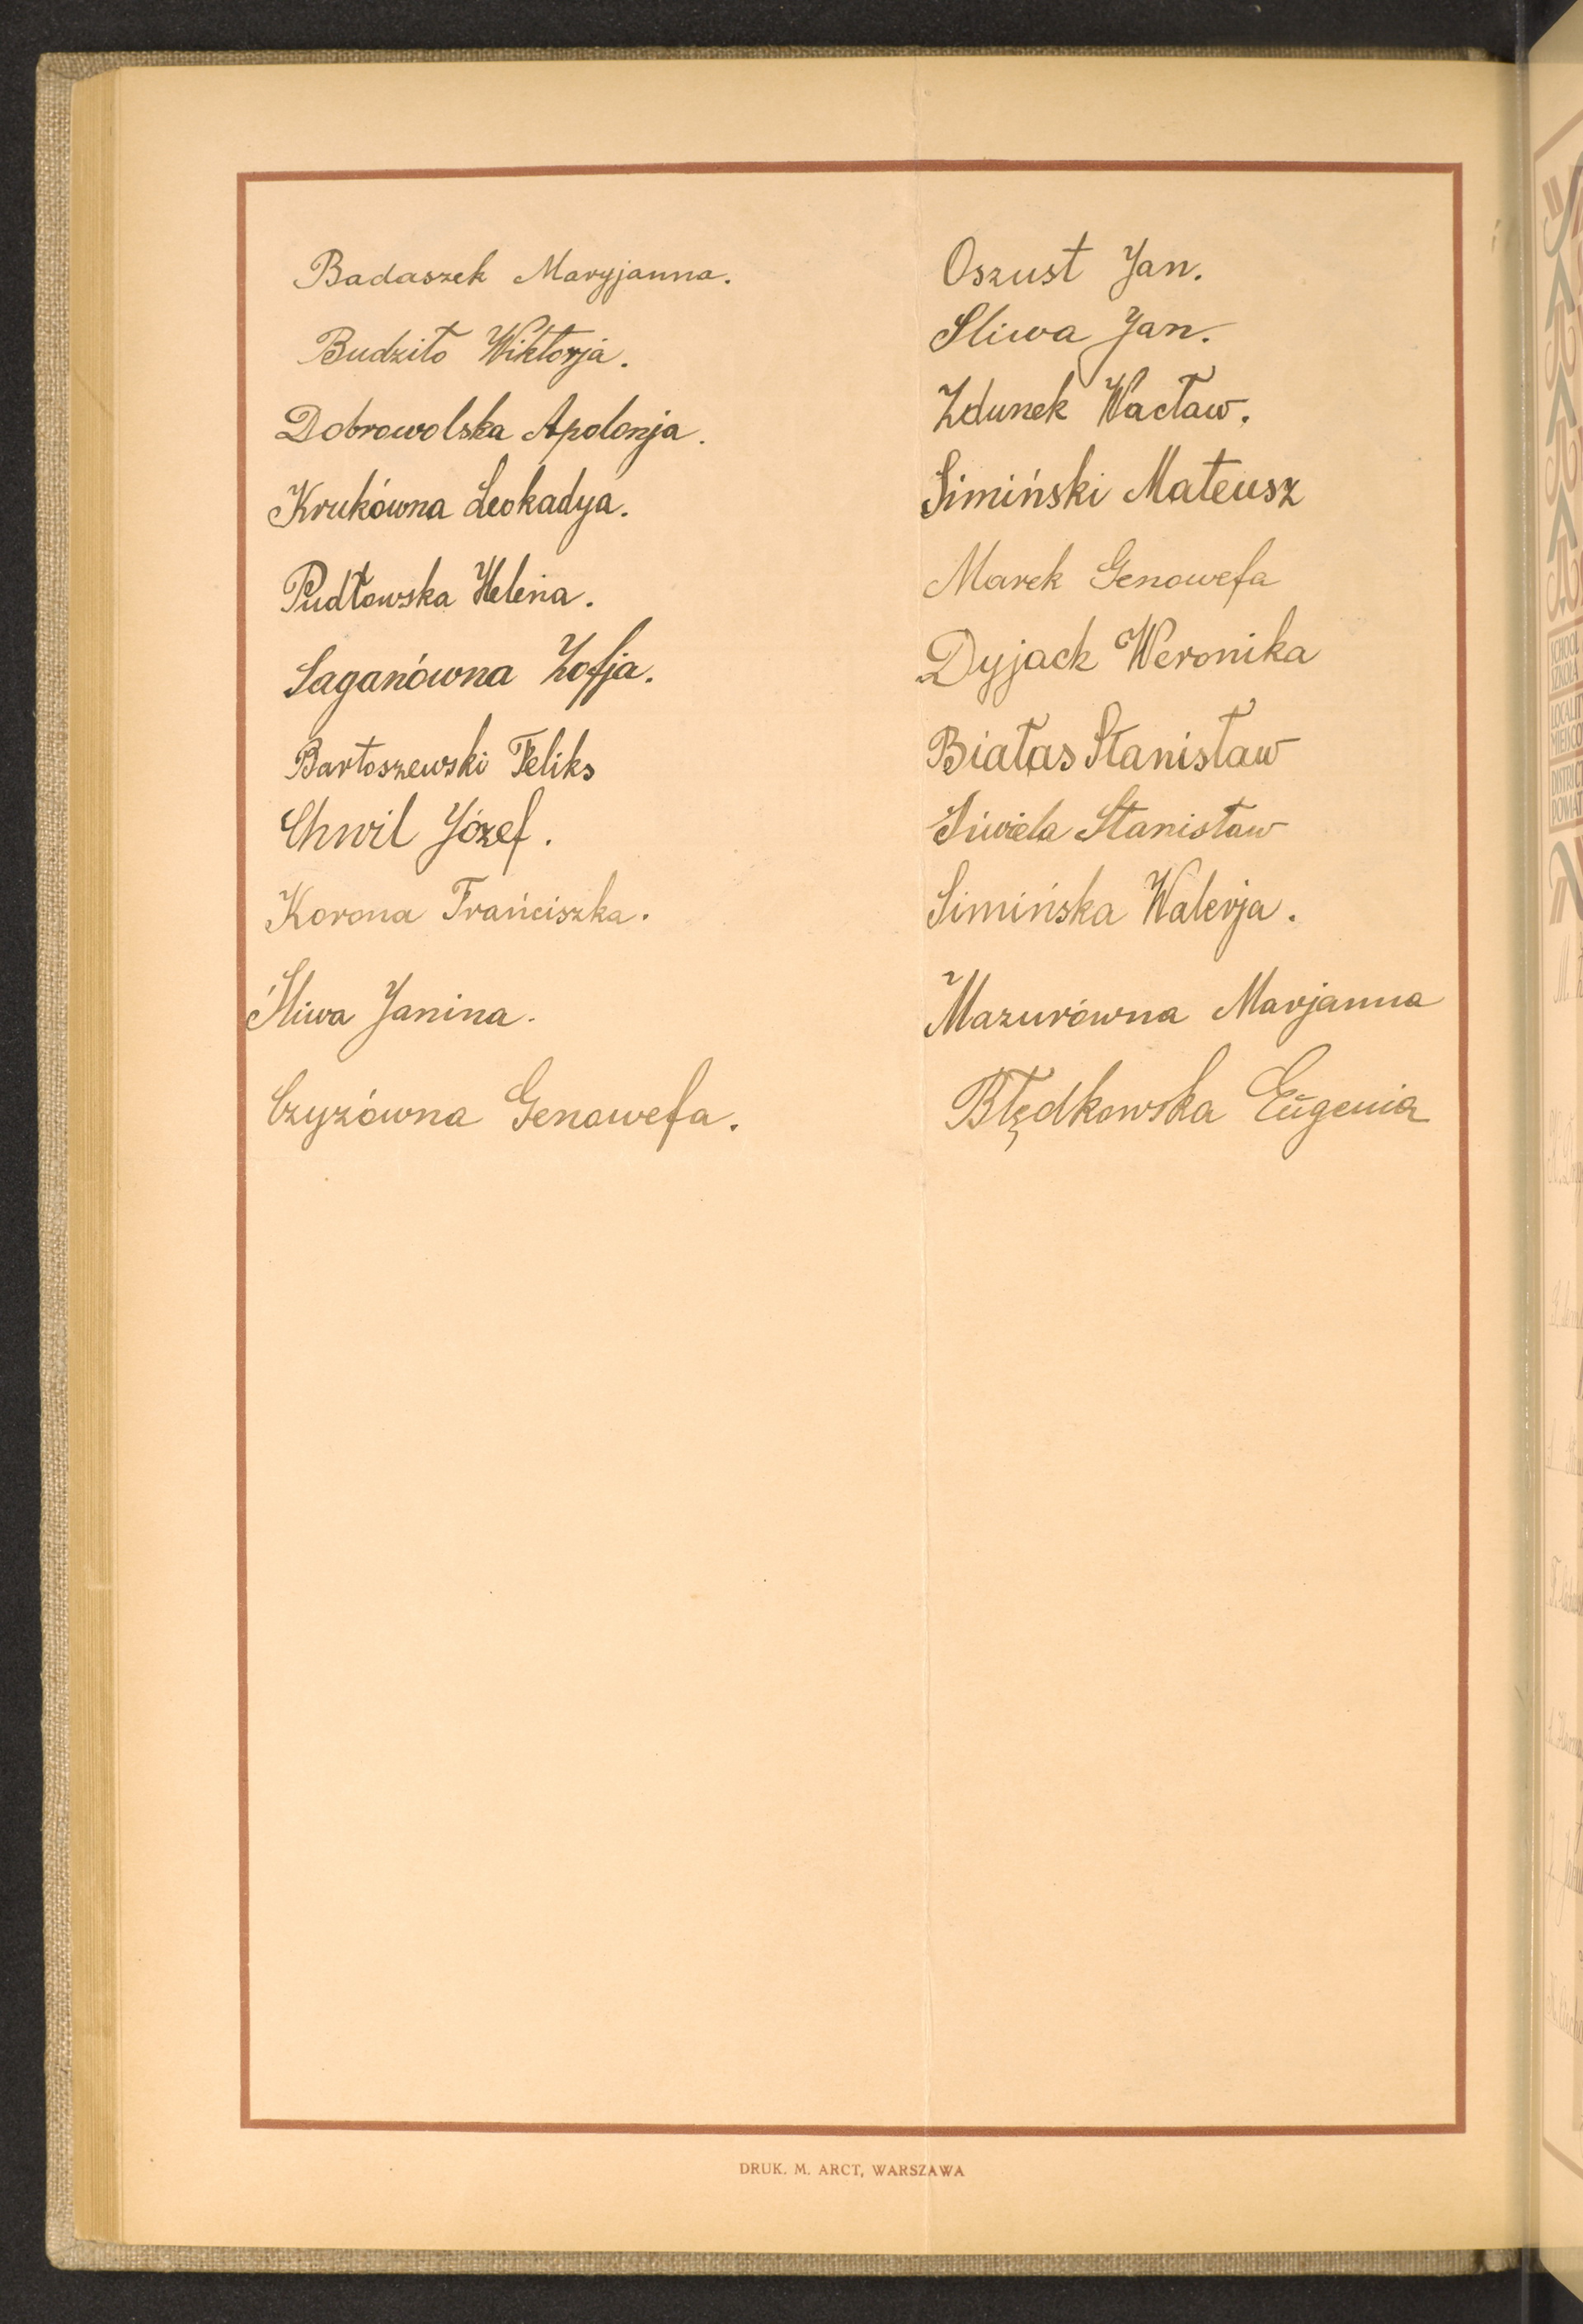 Badaszek Maryjanna.
Budziło Wiktorja.
Dobrowolska Apolonja.
Krukówna Leokadya.
Pudłowska Helena.
Saganówna Zofja.
Bartoszewski Feliks
Chwil Józef.
Korona Franciszka.
Śliwa Janina.
Czyzówna Genowefa.
Oszust Jan.
Sliwa Jan.
Zdunek Wacław.
Simiński Mateusz
Marek Genowefa
Dyjack Weronika
Białas Stanisław
Siwiela Stanisław
Simińska Walerja.
Mazurówna Marjanna
Błędkowska Eugenia
DRUK. M. ARCT, WARSZAWA